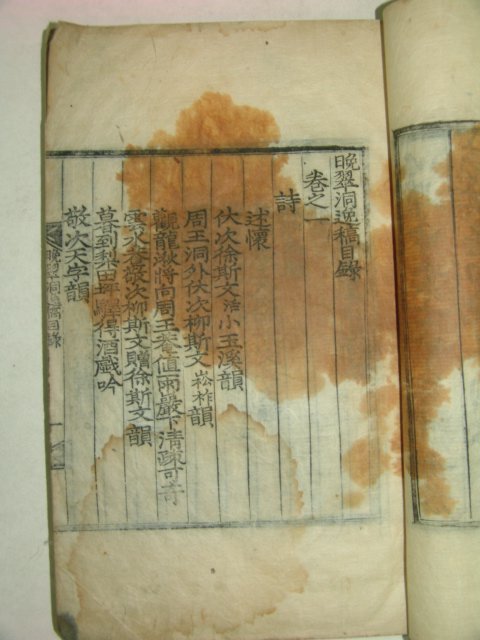 晩翠洞逸稿目錄
卷之一
詩
述懷
伏次徐斯文 活 小玉溪韻
周王洞外伏次柳斯文 崧祚 韻
觀龍湫將向周王 値雨巖下淸 可
雲水 次柳斯文贈徐斯文韻
暮到梨田坪 得酒 吟
敬次天字韻
晩翠洞逸稿目錄
一